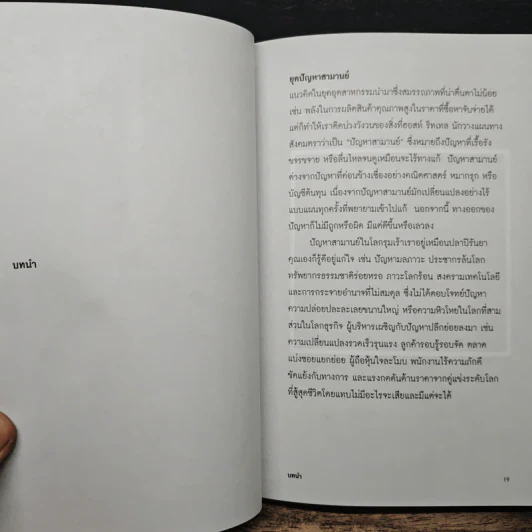 บทนำ
ยุคปัญหาสามานย์
แนวคิดในยุคอุตสาหกรรมนำมาซึ่งสมรรถภาพที่น่าตื่นตาไม่น้อย
เช่น พลังในการผลิตสินค้าคุณภาพสูงในราคาที่ซื้อหาจับจ่ายได้
แต่ก็ทำให้เราติดบ่วงวังวนของสิ่งที่ฮอสท์ ริทเทล นักวางแผนทาง
สังคมตราว่าเป็น "ปัญหาสามานย์" ซึ่งหมายถึงปัญหาที่เรื้อรัง
ขจรขจาย หรือลื่นไหลจนดูเหมือนจะไร้ทางแก้ ปัญหาสามานย์
ต่างจากปัญหาที่ค่อนข้างเชื่องอย่างคณิตศาสตร์ หมากรุก หรือ
บัญชีต้นทุน เนื่องจากปัญหาสามานย์มักเปลี่ยนแปลงอย่างไร้
แบบแผนทุกครั้งที่พยายามเข้าไปแก้ นอกจากนี้ ทางออกของ
ปัญหาก็ไม่มีถูกหรือผิด มีแค่ดีขึ้นหรือเลวลง
ปัญหาสามานย์ในโลกรุมเร้าเราอยู่เหมือนปลาปิรันยา
คุณเองก็รู้ดีอยู่แก่ใจ เช่น ปัญหามลภาวะ ประชากรล้นโลก
ทรัพยากรธรรมชาติร่อยหรอ ภาวะโลกร้อน สงครามเทคโนโลยี
และการกระจายอำนาจที่ไม่สมดุล ซึ่งไม่ได้ตอบโจทย์ปัญหา
ความปล่อยปละละเลยขนานใหญ่ หรือความหิวโหยในโลกที่สาม
ส่วนในโลกธุรกิจ ผู้บริหารเผชิญกับปัญหาปลีกย่อยลงมา เช่น
ความเปลี่ยนแปลงรวดเร็วรุนแรง ลูกค้ารอบรู้รอบจัด ตลาด
แบ่งซอยแยกย่อย ผู้ถือหุ้นใจละโมบ พนักงานไร้ความภักดี
ขัดแย้งกับทางการ และแรงกดดันด้านราคาจากคู่แข่งระดับโลก
ที่สู้สุดชีวิตโดยแทบไม่มีอะไรจะเสียและมีแต่จะได้
บทนำ
19